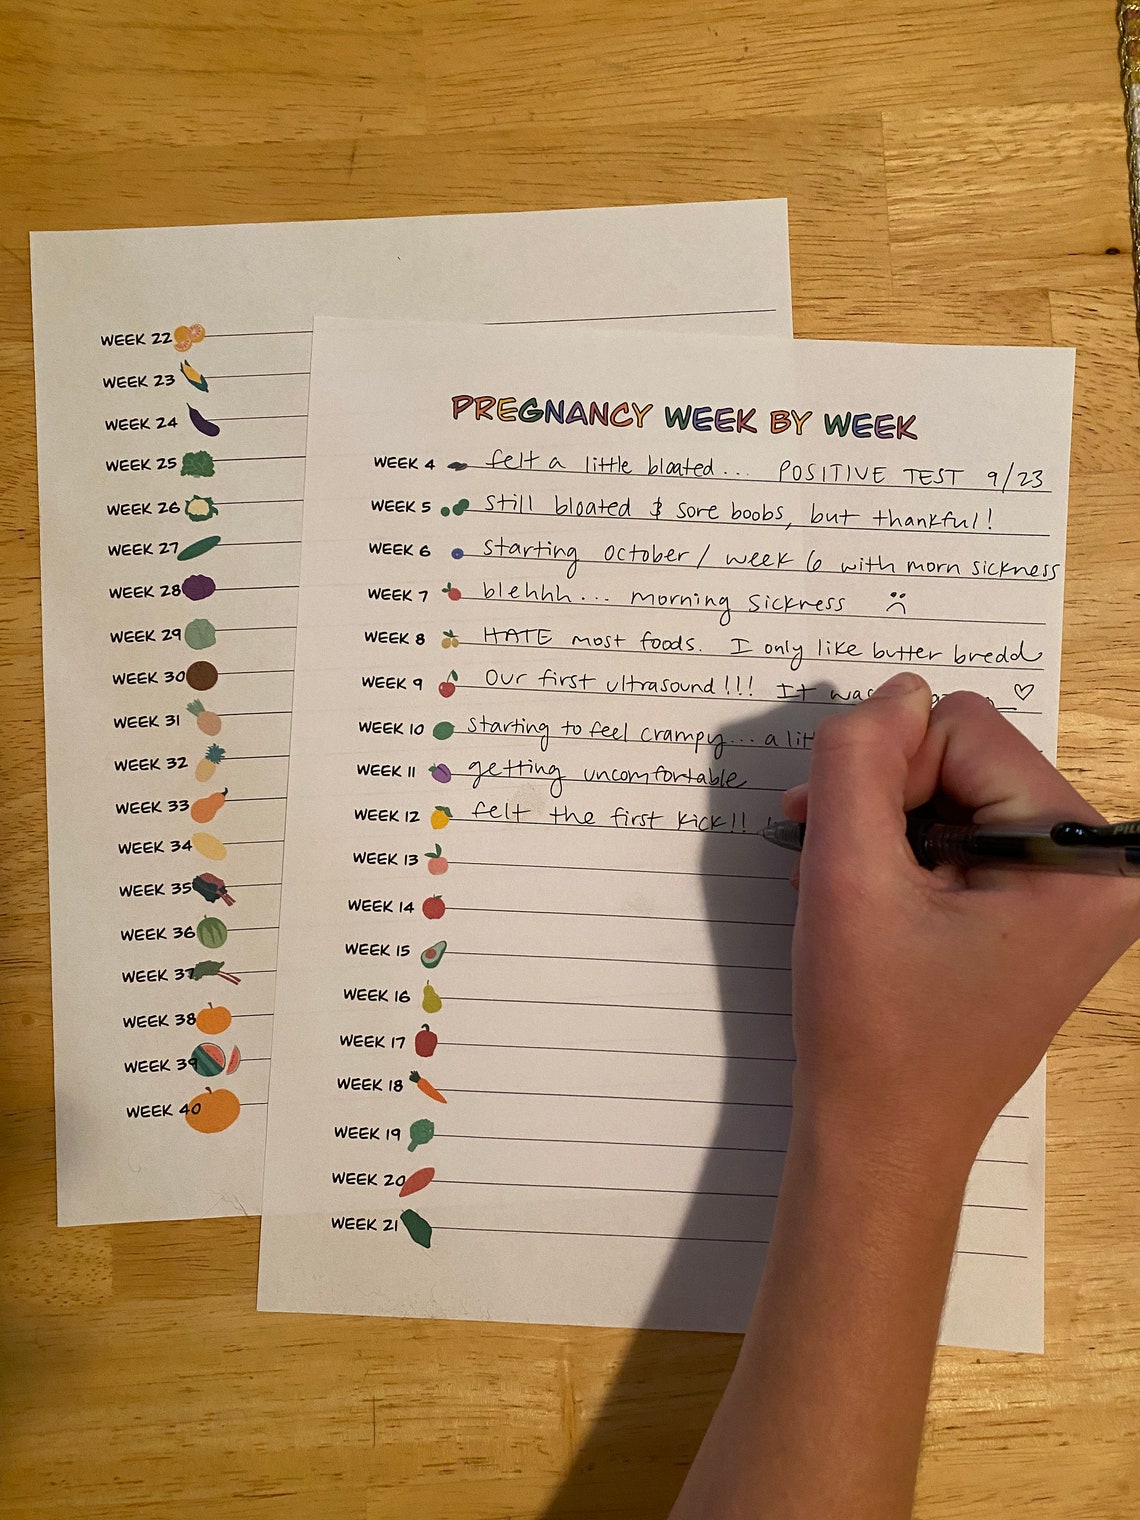 PREGNANCY WEEK BY WEEK
WEEK 4 felt a little bloated... POSITIVE TEST 9/23
WEEK 5 still bloated & sore boobs, but thankful!
WEEK 6 starting october / week 6 with morn sickness
WEEK 7 blehhh... morning sickness
WEEK 8 HATE most foods. I only like butter bredd
WEEK 9 our first ultrasound!!! It was
WEEK 10 starting to feel crampy... a
WEEK 11 getting uncomfortable
WEEK 12 felt the first kick!!
WEEK 13
WEEK 14
WEEK 15
WEEK 16
WEEK 17
WEEK 18
WEEK 19
WEEK 20
WEEK 21
WEEK 22
WEEK 23
WEEK 24
WEEK 25
WEEK 26
WEEK 27
WEEK 28
WEEK 29
WEEK 30
WEEK 31
WEEK 32
WEEK 33
WEEK 34
WEEK 35
WEEK 36
WEEK 37
WEEK 38
WEEK 39
WEEK 40